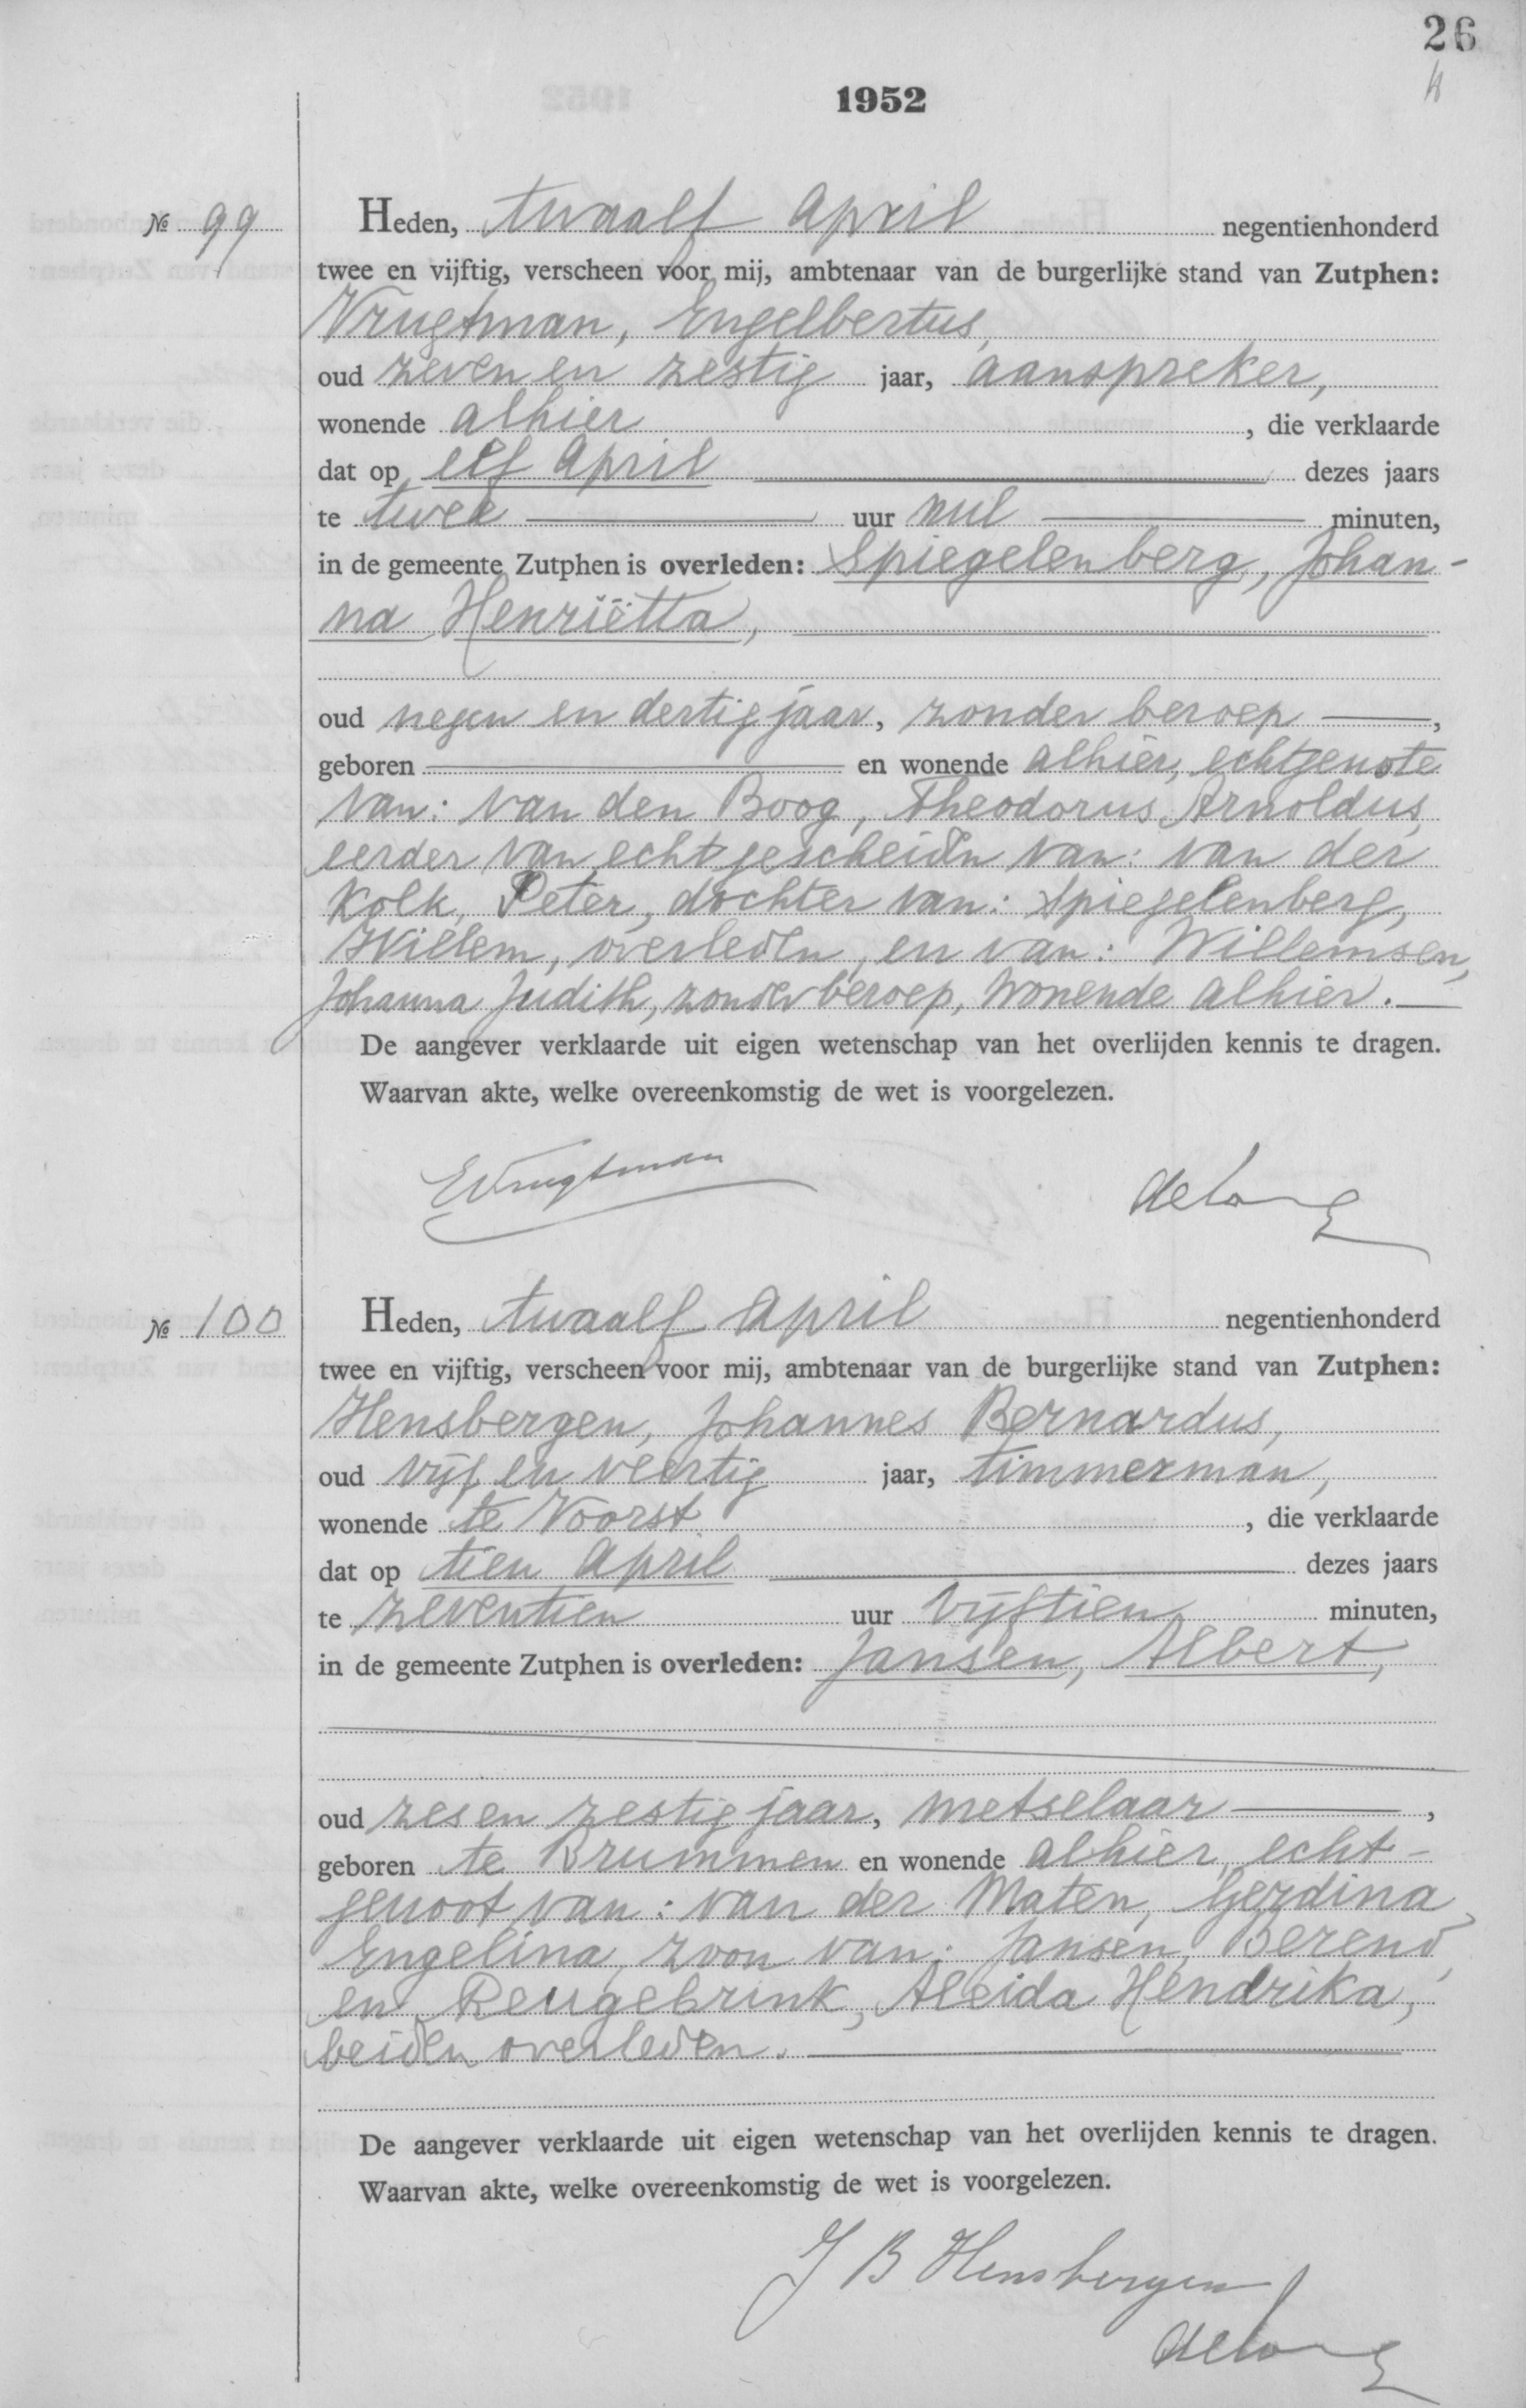 26
1952
№ 99 Heden, twaalf April negentienhonderd
twee en vijftig, verscheen voor mij, ambtenaar van de burgerlijke stand van Zutphen:
Vrugtman, Engelbertus,
oud zeven en zestig jaar, aanspreker,
wonende alhier , die verklaarde
dat op elf April dezes jaars
te twee uur nul minuten,
in de gemeente Zutphen is overleden: Spiegelenberg, Johan-
na Henriëtta,
oud negen en dertig jaar, zonder beroep ,
geboren en wonende alhier, echtgenote
van: van den Boog, Theodorus Arnoldus,
eerder van echt gescheiden van: van der
Kolk, Peter, dochter van: Spiegelenberg,
Willem, overleden, en van: Willemsen,
Johanna Judith, zonder beroep, wonende alhier.
De aangever verklaarde uit eigen wetenschap van het overlijden kennis te dragen.
Waarvan akte, welke overeenkomstig de wet is voorgelezen.
EVrugtman
№ 100 Heden, twaalf April negentienhonderd
twee en vijftig, verscheen voor mij, ambtenaar van de burgerlijke stand van Zutphen:
Hensbergen, Johannes Bernardus,
oud vijf en veertig jaar, timmerman,
wonende te Voorst , die verklaarde
dat op tien April dezes jaars
te zeventien uur vijftien minuten,
in de gemeente Zutphen is overleden: Jansen, Albert,
oud zes en zestig jaar, metselaar ,
geboren te Brummen en wonende alhier, echt-
genoot van: van der Maten, Gerdina
Engelina, zoon van: Jansen, Berend,
en Reugebrink, Aleida Hendrika,
beiden overleden.
De aangever verklaarde uit eigen wetenschap van het overlijden kennis te dragen.
Waarvan akte, welke overeenkomstig de wet is voorgelezen.
J B Hensbergen